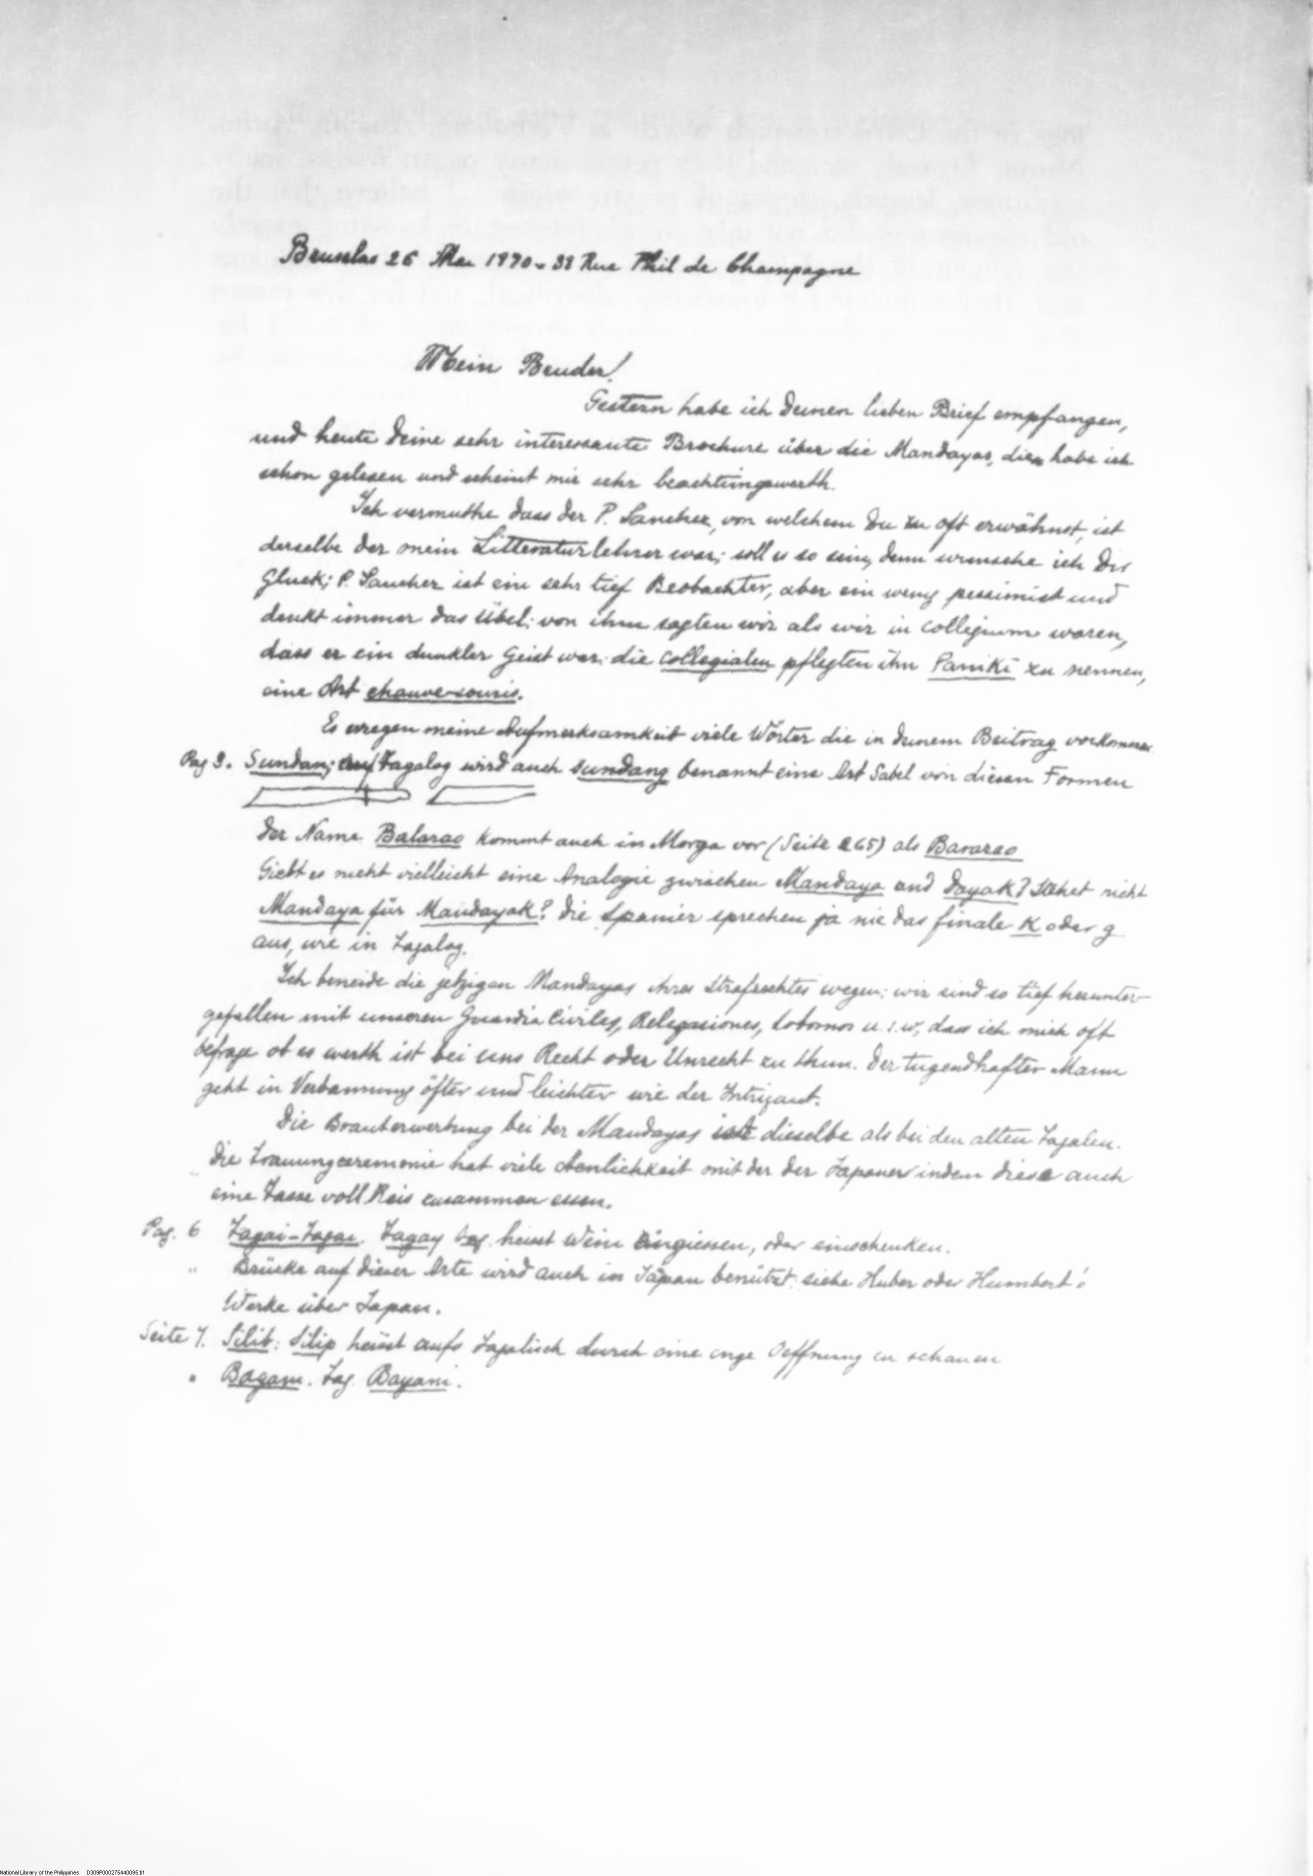 Bruselas 26 Mai 1890 - 38 Rue Phil de Champagne
Mein Bruder!
Gestern habe ich Deinen lieben Brief empfangen,
und heute Deine sehr interessante Brochure über die Mandayas, dies habe ich
schon gelesen und scheint mir sehr beachtungswerth.
Ich vermuthe dass der P. Sanchez, von welchem Du zu oft erwähnst, ist
derselbe der mein Litteraturlehrer war; soll es so sein, denn wunsche ich Dir
Gluck; P. Sanchez ist ein sehr tief Beobachter, aber ein wenig pessimist und
denkt immer das Übel: von ihm sagten wir als wir in collegium waren,
dass er ein dunkler Geist war: die collegialen pflegten ihn Paniki zu nennen,
eine Art chauve-souris.
Es erregen meine Aufmerksamkeit viele Wörter die in deinem Beitrag vorkommen
Pag 3. Sundan; auf Tagalog wird auch sundang benannt eine Art Sabel von diesen Formen
Der Name Balarao kommt auch in Morga vor (Seite 265) als Bararao
Giebt es nicht vielleicht eine Analogie zwischen Mandaya und Dayak? Stehet nicht
Mandaya für Mandayak? Die Spanier sprechen ja nie das finale K oder g
aus, wie in Tagalog.
Ich beneide die jetzigen Mandayas ihres Strafrechtes wegen: wir sind so tief herunter-
gefallen mit unseren Guardia Civiles, Relegaciones, Sobornos u.s.w, dass ich mich oft
befrage ob es werth ist bei uns Recht oder Unrecht zu thun. Der tugendhafter Mann
geht in Verbannung öfter und leichter wie der Intrigant.
Die Brautwerbung bei der Mandayas ist dieselbe als bei den alten Tagalen.
Die Trauungceremonie hat viele Aenlichkeit mit der der Japaner indem diese auch
eine Tasse voll Reis zusammen essen.
Pag. 6 Tagai-Tagai. Tagay Tag. heisst Wein eingiessen, oder einschenken.
" Brücke auf dieser Arte wird auch in Japan benützt: siehe Huber oder Humbert's
Werke über Japan.
Seite 7. Silib: Silip heisst aufs Tagalisch durch eine enge Oeffnung zu schauen
" Bagani. Tag. Bayani.
National Library of the Philippines